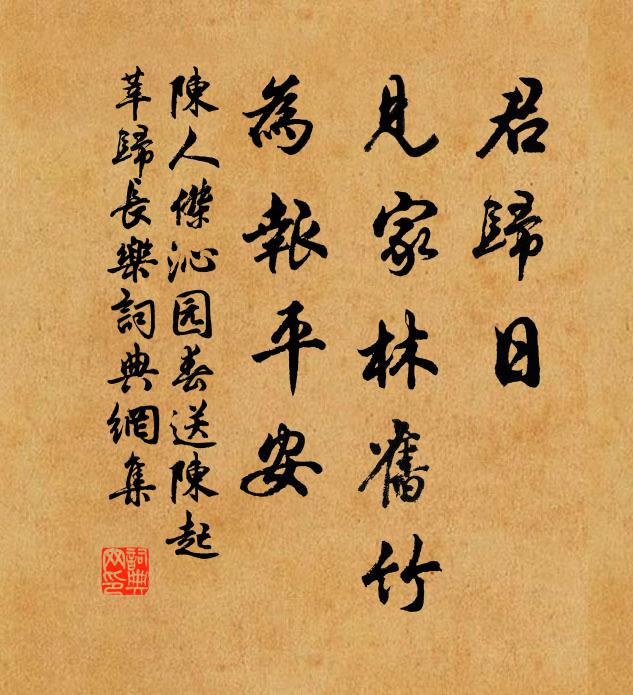 君歸日
見家林舊竹
為報平安
陳人傑沁园春送陳起
莘歸長樂詞典網集
詞典网印